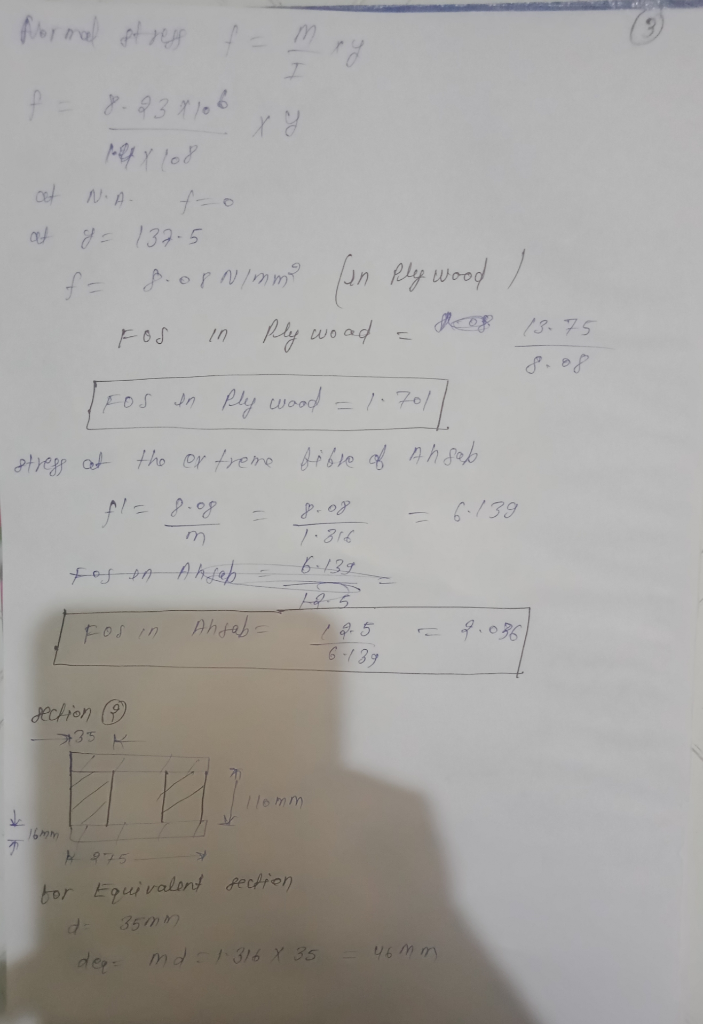 3
Normal stress f = M/I × y
f = 8.23 × 10^6 / 1.4 × 10^8 × y
at N.A. f = 0
at y = 137.5
f = 8.08 N/mm² (in Plywood)
FOS in Plywood = 13.75 / 8.08
FOS in Plywood = 1.701
stress at the extreme fibre of Ahsap
f' = 8.08/m = 8.08/1.316 = 6.139
FOS in Ahsap = 6.139/12.5 =
FOS in Ahsap = 12.5/6.139 = 2.036
section 2
35
110mm
16mm
275
for Equivalent section
d = 35mm
deq = md = 1.316 × 35 = 46mm